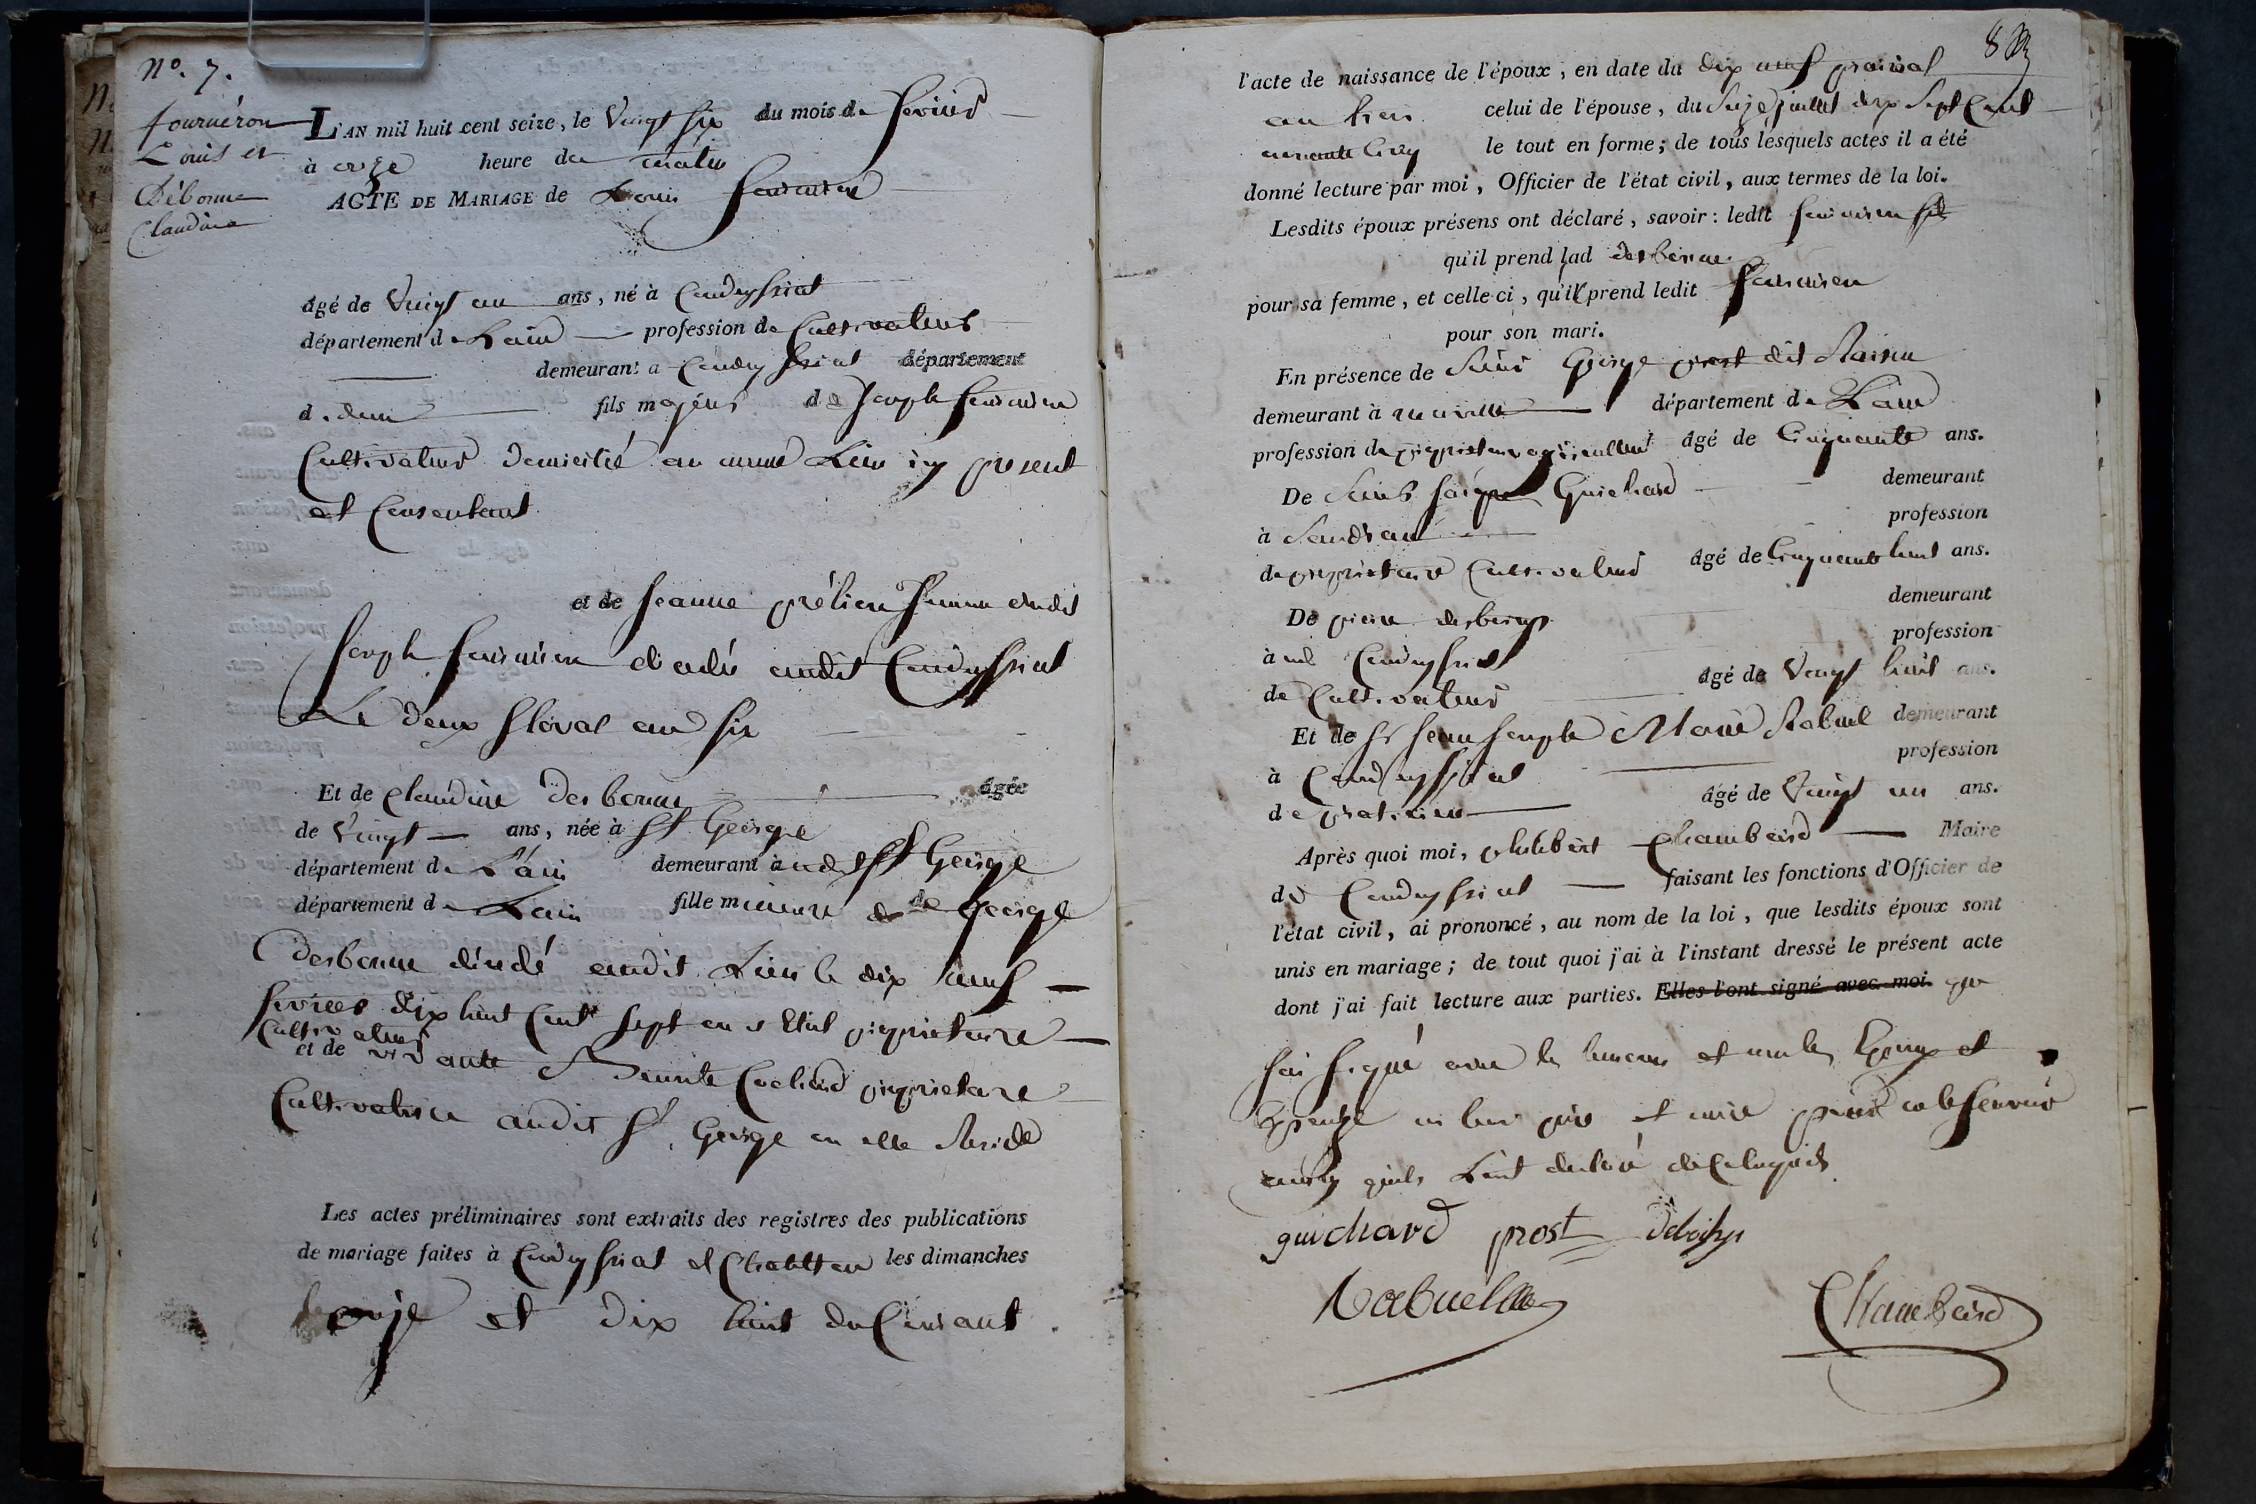 N°. 7.
Fourneron
Louis et
Débonne
Claudine
L'AN mil huit cent seize, le Vingt six du mois de fevrier
à onze heure du matin
ACTE DE MARIAGE de Louis
âgé de Vingt un ans, né à Condeyssiat
département de Lain profession de Cultivateur
demeurant a Condeyssiat département
d. fils majeur de Joseph
Cultivateur domicilié au meme Lieu icy present
et Consentant
et de Jeanne prélien femme dudit
Joseph décedée audit Condeyssiat
Le deux floreal an six
Et de Claudine Desbonne âgée
de Vingt ans, née à St George
département de Lain demeurant à St George
département de Lain fille mineure de George
Desbonne décedé audit Lieu le dix neuf
fevrier dix huit Cent sept en s Etat proprietaire
Cultivateur
et de vivante Benoite Cochard proprietaire
Cultivatrice audit St George ou elle Reside
Les actes préliminaires sont extraits des registres des publications
de mariage faites à Condeyssiat et Chatillon les dimanches
onze et dix huit du Courant
l'acte de naissance de l'époux, en date du dix neuf prairial
an trois celui de l'épouse, du juillet dix Sept Cent
le tout en forme; de tous lesquels actes il a été
donné lecture par moi, Officier de l'état civil, aux termes de la loi.
Lesdits époux présens ont déclaré, savoir: ledit
qu'il prend lad desbonne
pour sa femme, et celle-ci, qu'il prend ledit
pour son mari.
En présence de Sieur George prost dit
demeurant à neuville département de Lain
profession de proprietaire âgé de Cinquante ans.
De Sieur Guichard demeurant
à Sandran profession
de proprietaire Cultivateur âgé de Cinquante huit ans.
De pierre demeurant
à Condeyssiat profession
de Cultivateur âgé de Vingt huit ans.
Et de Sr Jean Joseph Marie Rabuel demeurant
à Condeyssiat profession
de praticien âgé de Vingt un ans.
Après quoi moi, philibert Chambard Maire
de Condeyssiat faisant les fonctions d'Officier de
l'état civil, ai prononcé, au nom de la loi, que lesdits époux sont
unis en mariage; de tout quoi j'ai à l'instant dressé le présent acte
dont j'ai fait lecture aux parties. Elles l'ont signé avec moi. que
j'ai signé avec les temoins et non les Epoux et
Epouse ni leur pere et mere pour ne le scavoir
ainsy quils l'ont declaré de Ce Enquis
guichard prost
Rabuel
Chambard